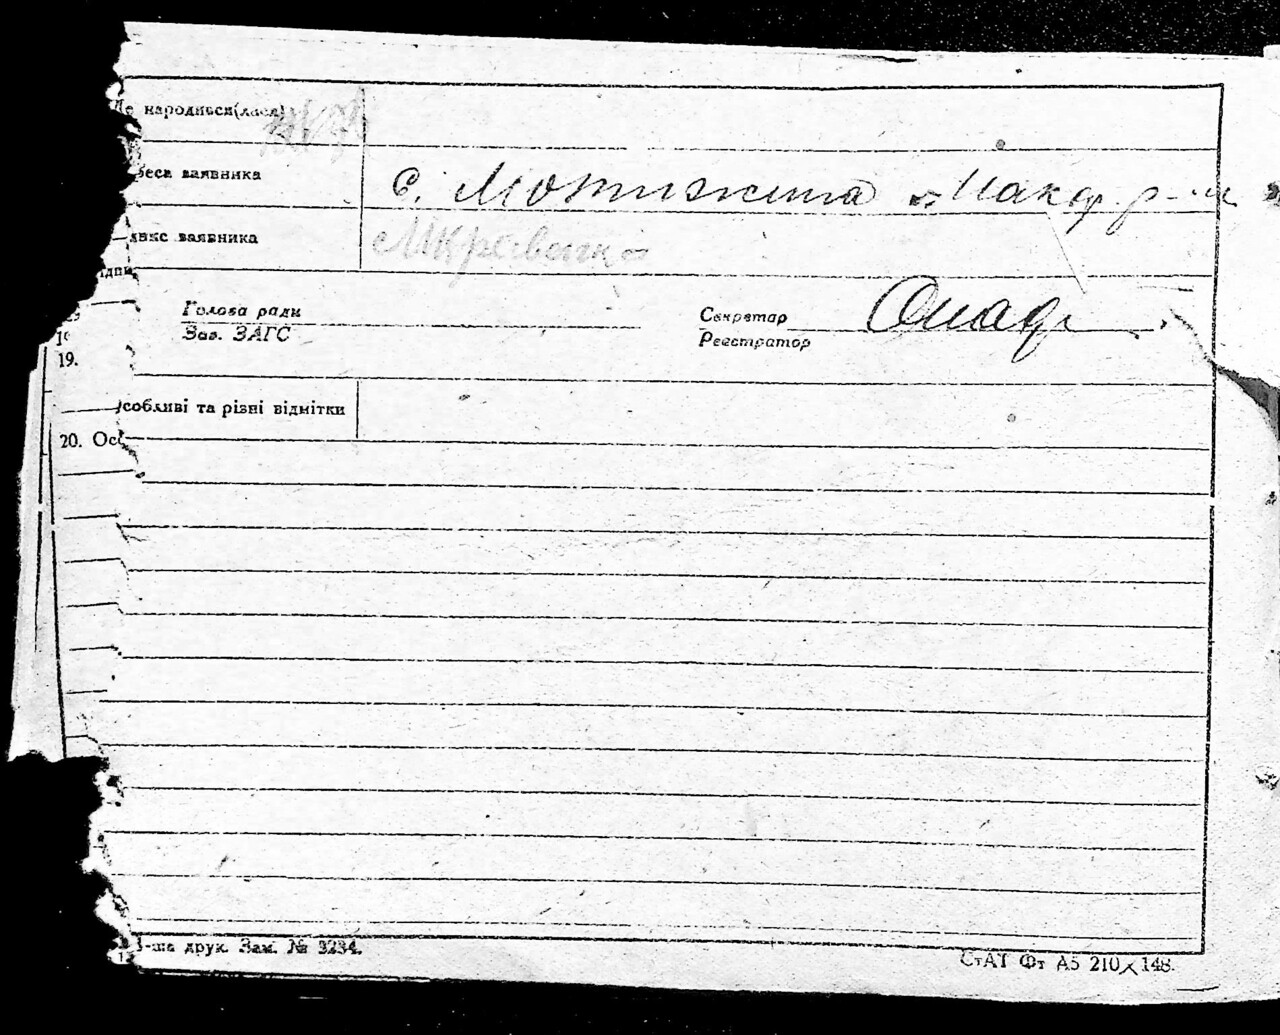 Де народився(лася)
реса заявника с. Мотижина Макар. р-н
дпис заявника Мкрівенко
ідпи
Голова ради
Зав. ЗАГС
Секретар
Реєстратор
19.
собливі та різні відмітки
20. Осо
1-ша друк. Зам. № 3234.
СтАТ Фт А5 210×148.